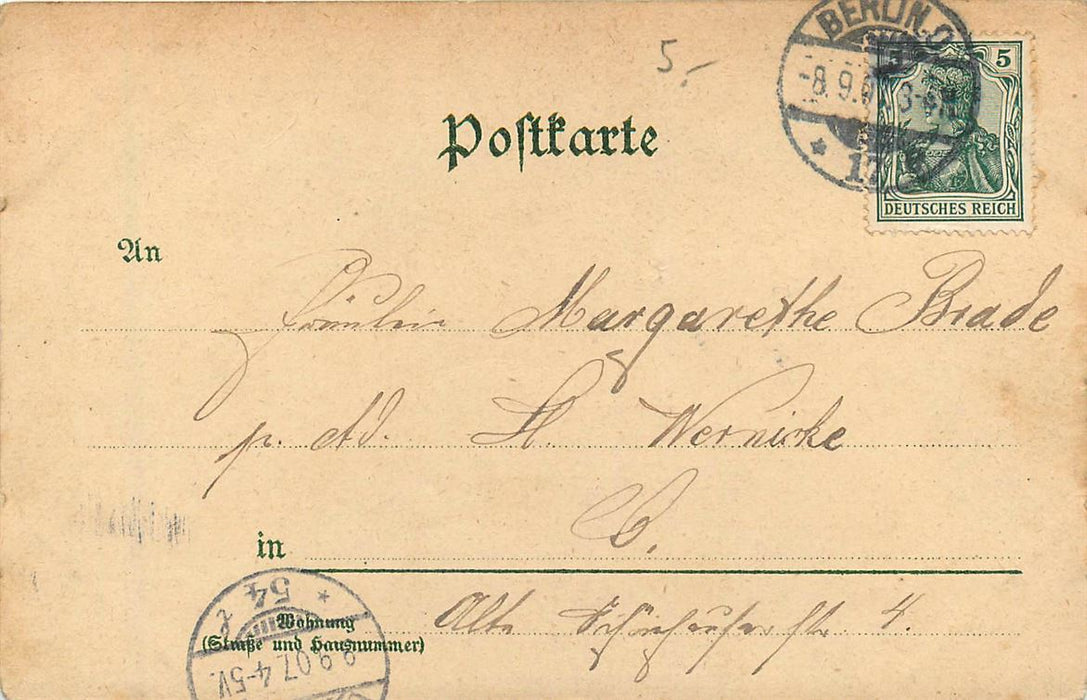 BERLIN.O.
-8.9.0 3-4N
* 17
5
DEUTSCHES REICH
5.-
Postkarte
An
Fräulein Margarethe Brade
p. Ad. H. Wernicke
in C.
Wohnung
(Straße und Hausnummer)
Alte Schönhauserstr. 4.
* 54 t
9.07.4-5V.